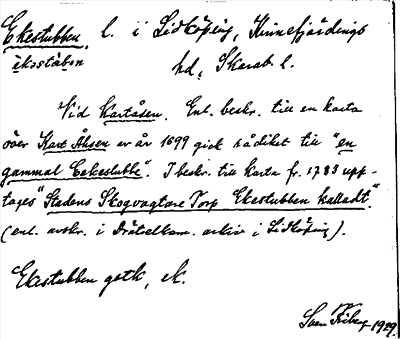 Ekestubben, l. i Lidköping, Kinnefjärdings
ekostubon hd, Skarab. l.
Vid Kartåsen. Enl. beskr. till en karta
över Kart Åhsen er år 1699 gick rådiket till "en
gammal Eekestubbe". I beskr. till karta fr. 1783 upp-
tages "Stadens Skogvagtare Torp Ekestubben kalladt".
(enl. avskr. i Drätselkam. arkiv i Lidköping).
Ekestubben gatk, ek.
Sven Friberg 1929.